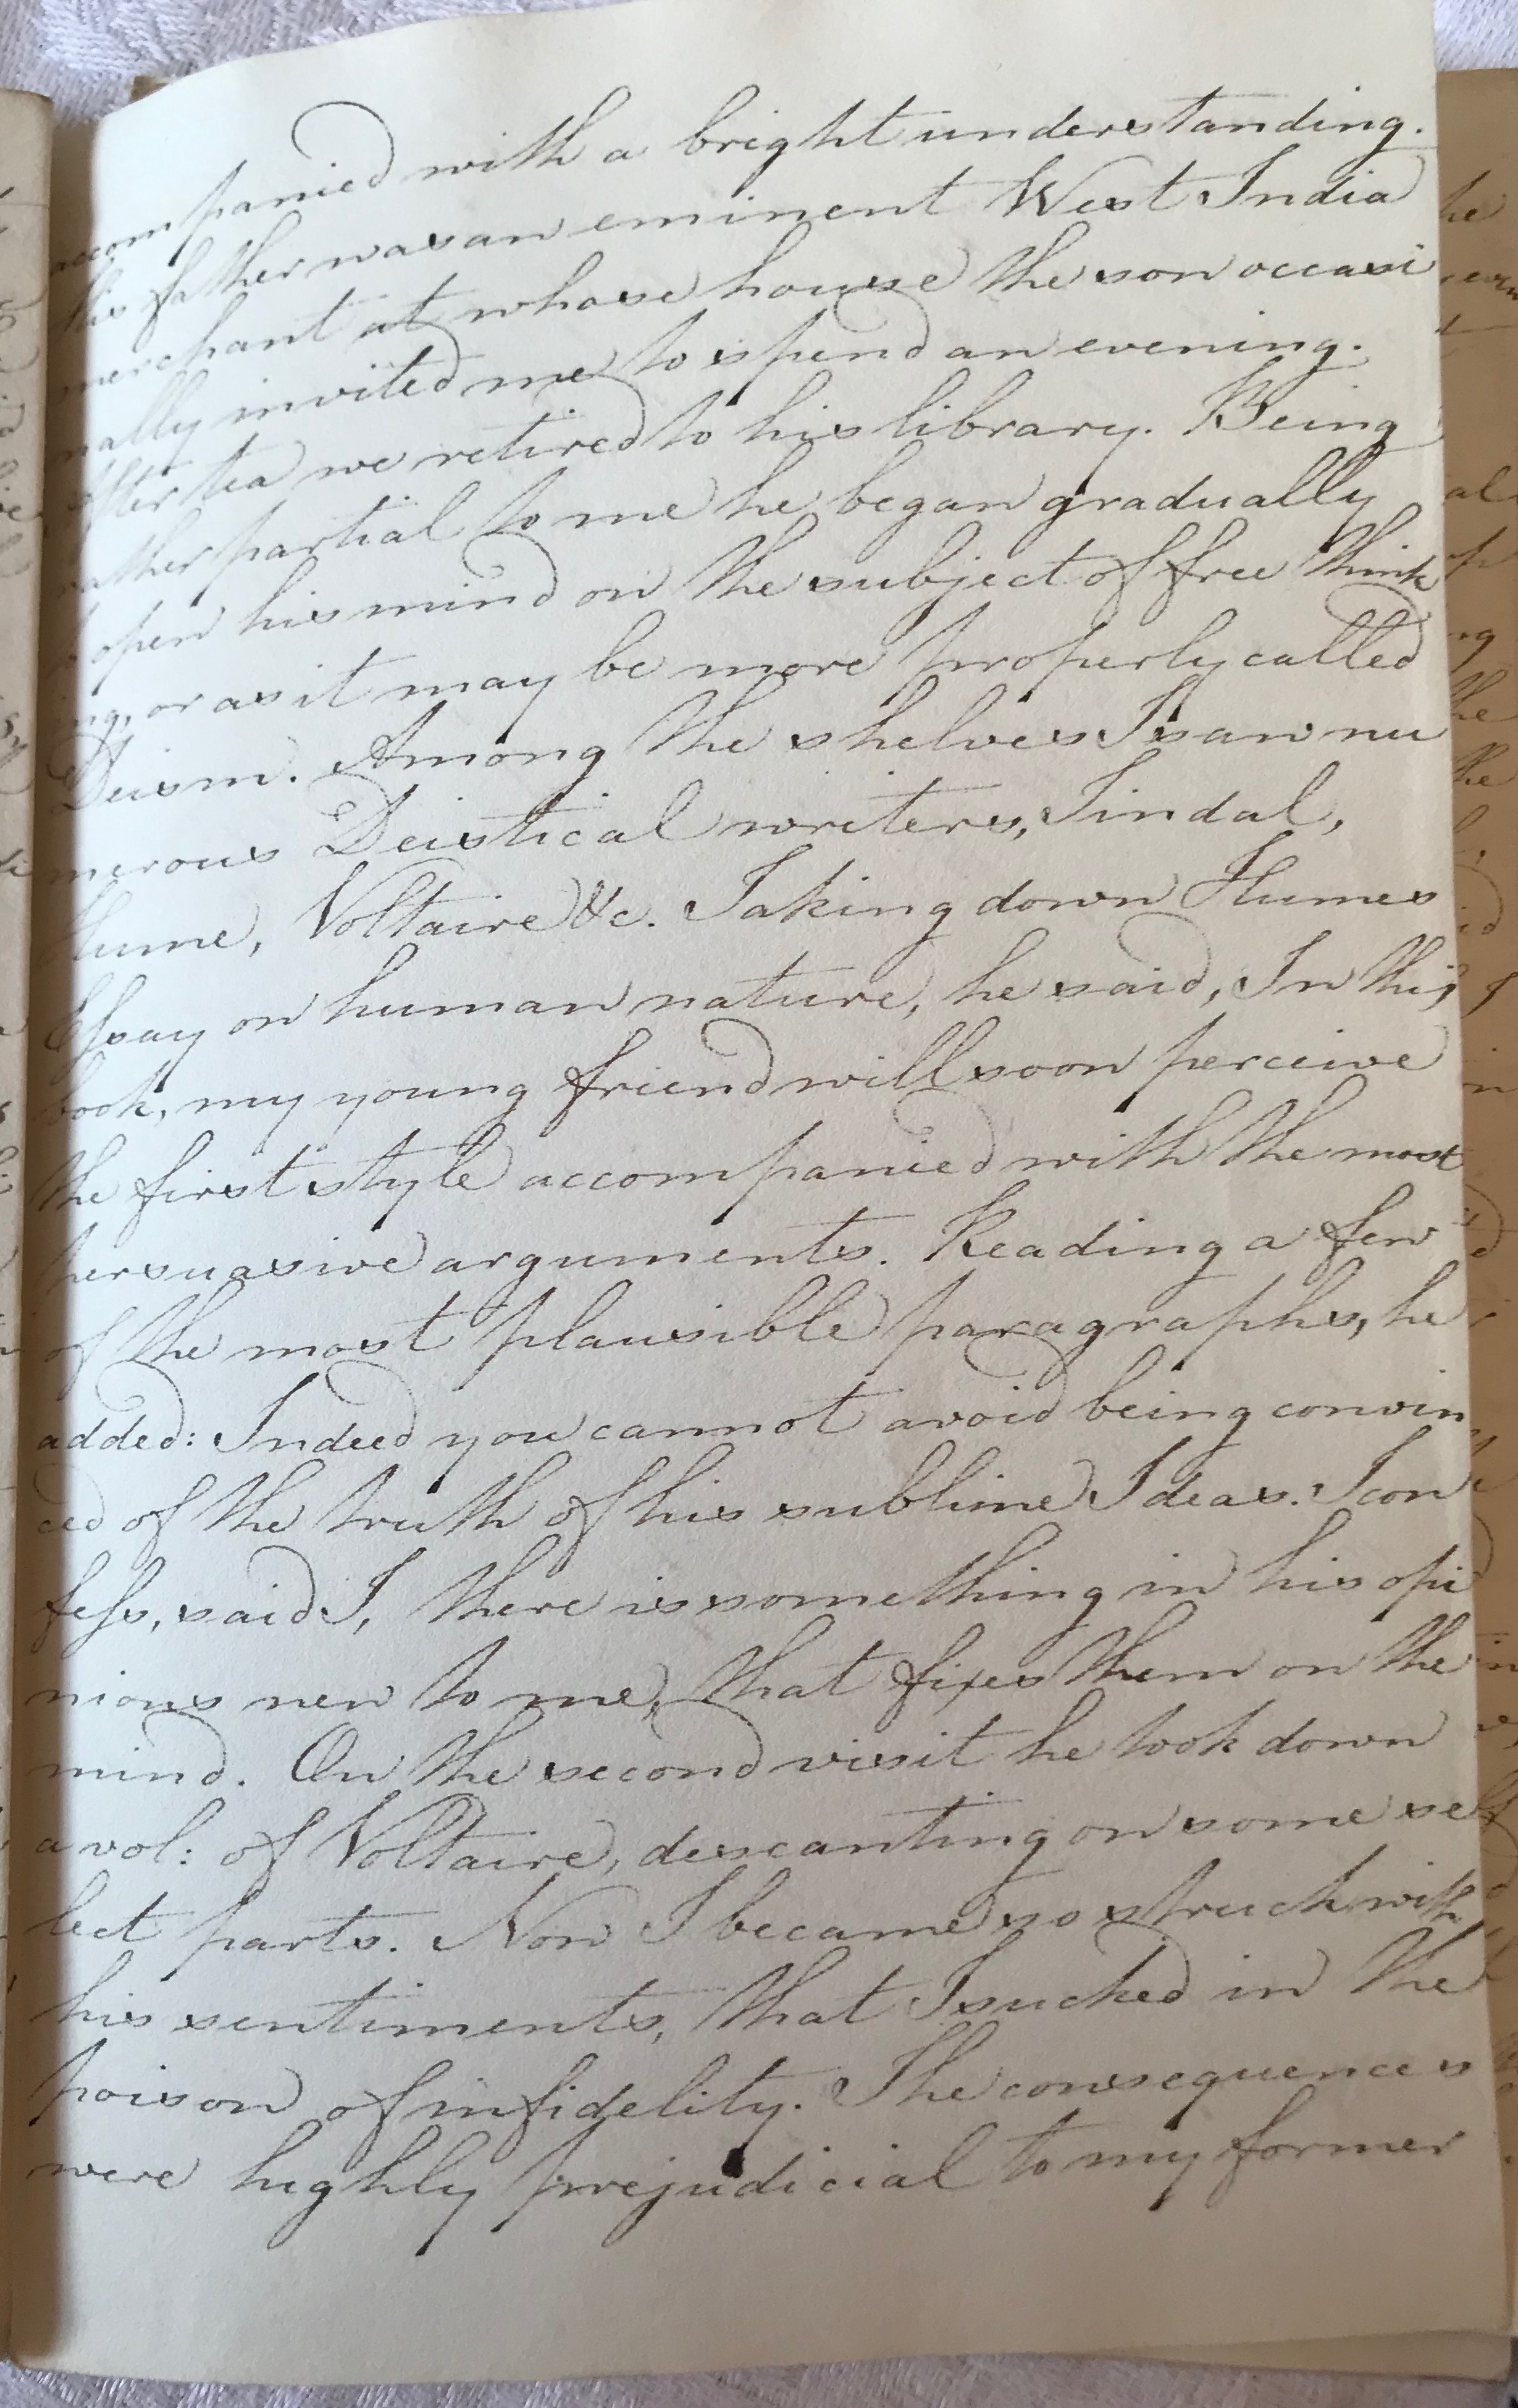 accompanied with a bright understanding.
His father was an eminent West India
merchant at whose house the son occasi
nally invited me to spend an evening.
After tea we retired to his library. Being
rather partial to me he began gradually
to open his mind on the subject of free think
ing, or as it may be more properly called
Deism. Among the shelves I saw nu
merous Deistical writers, Tindal,
Hume, Voltaire &c. Taking down Humes
Essay on human nature, he said, In this
book, my young friend will soon perceive
the first style accompanied with the most
persuasive arguments. Reading a few
of the most plausible paragraphs, he
added: Indeed you cannot avoid being convin
ced of the truth of his sublime Ideas. I con
fess, said I, there is something in his opi
nions new to me, that fixes them on the
mind. On the second visit he took down
a vol: of Voltaire, descanting on some se
lect parts. Now I became so struck with
his sentiments, that I sucked in the
poison of infidelity. The consequences
were highly prejudicial to my former